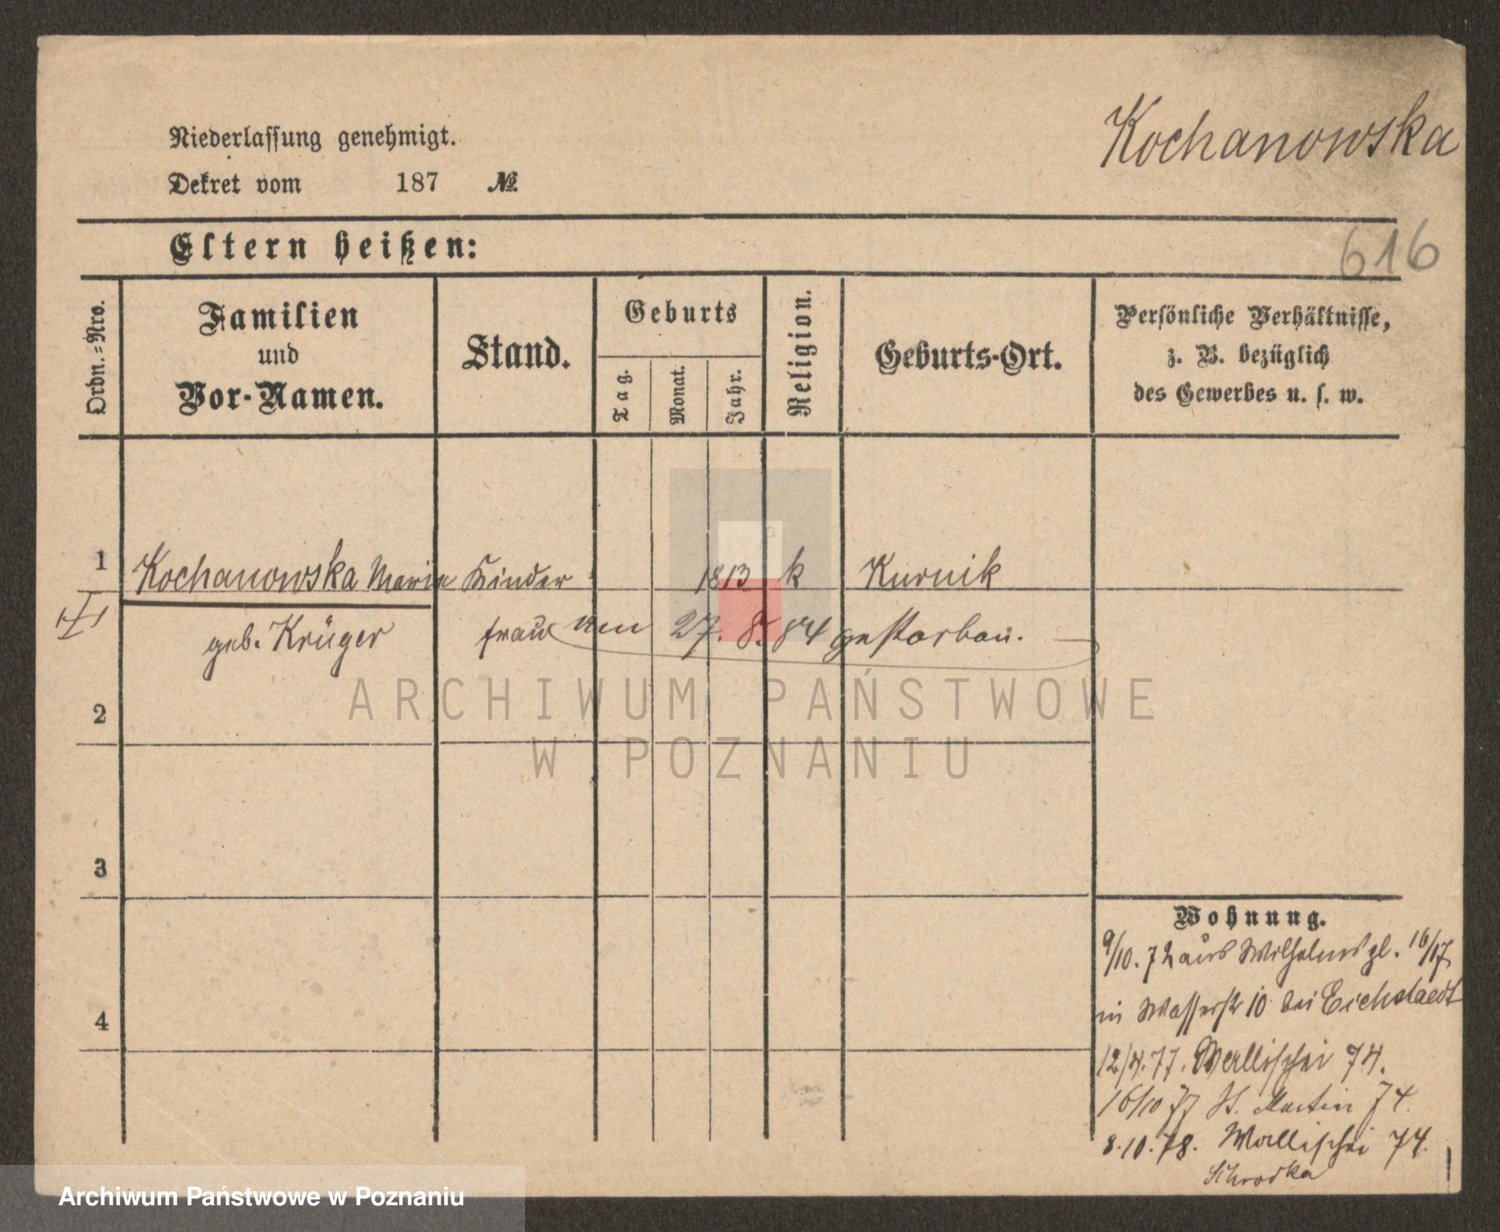 Kochanowska
Niederlassung genehmigt.
Dekret vom 187 №
616
Eltern heißen:
Ordn.-Nro.
Familien
und
Vor-Namen.
Stand.
Geburts
Tag.
Monat.
Jahr.
Religion.
Geburts-Ort.
Persönliche Verhältnisse,
z. B. bezüglich
des Gewerbes u. s. w.
1 Kochanowska Maria Kinder 1813 k Kurnik
geb. Krüger frau am 27. 8. 84 gestorben.
2
3
4
ARCHIWUM PAŃSTWOWE
W POZNANIU
Wohnung.
9/10. 72 aus Wilhelmspl. 16/17
in Wasserstr 10 bei Eichstaedt
12/4. 77. Wallischei 74.
16/10 77 St. Martin 74.
8.10.78. Wallischei 74.
Schrodka
Archiwum Państwowe w Poznaniu